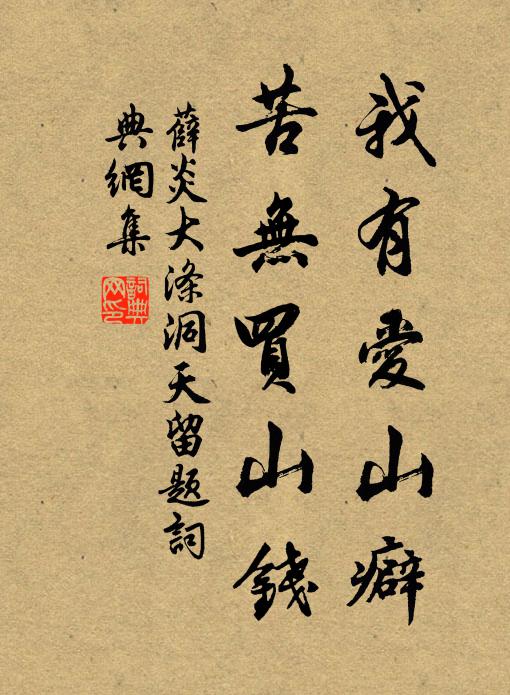 我有愛山癖
苦無買山錢
薛炎大滌洞天留題詞
典網集
詞典網印